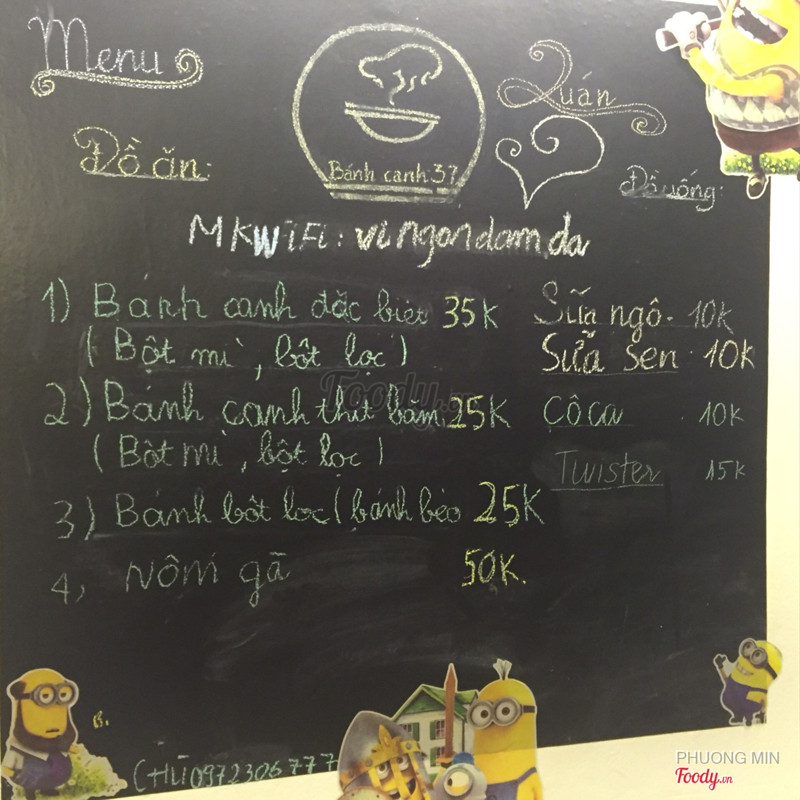 Menu
Quán
Bánh canh 37
Đồ ăn:
Đồ uống:
MK WiFi: vingondamda
1) Bánh canh đặc biệt 35K
(Bột mì, bột lọc)
2) Bánh canh thịt băm 25K
(Bột mì, bột lọc)
3) Bánh bột lọc (bánh bèo 25K
4, Nộm gà 50K.
Sữa ngô. 10K
Sữa Sen. 10K
Côca . 10K
Twister 15K
0972306777
Foody.vn
Foody.vn
PHUONG MIN
Foody.vn